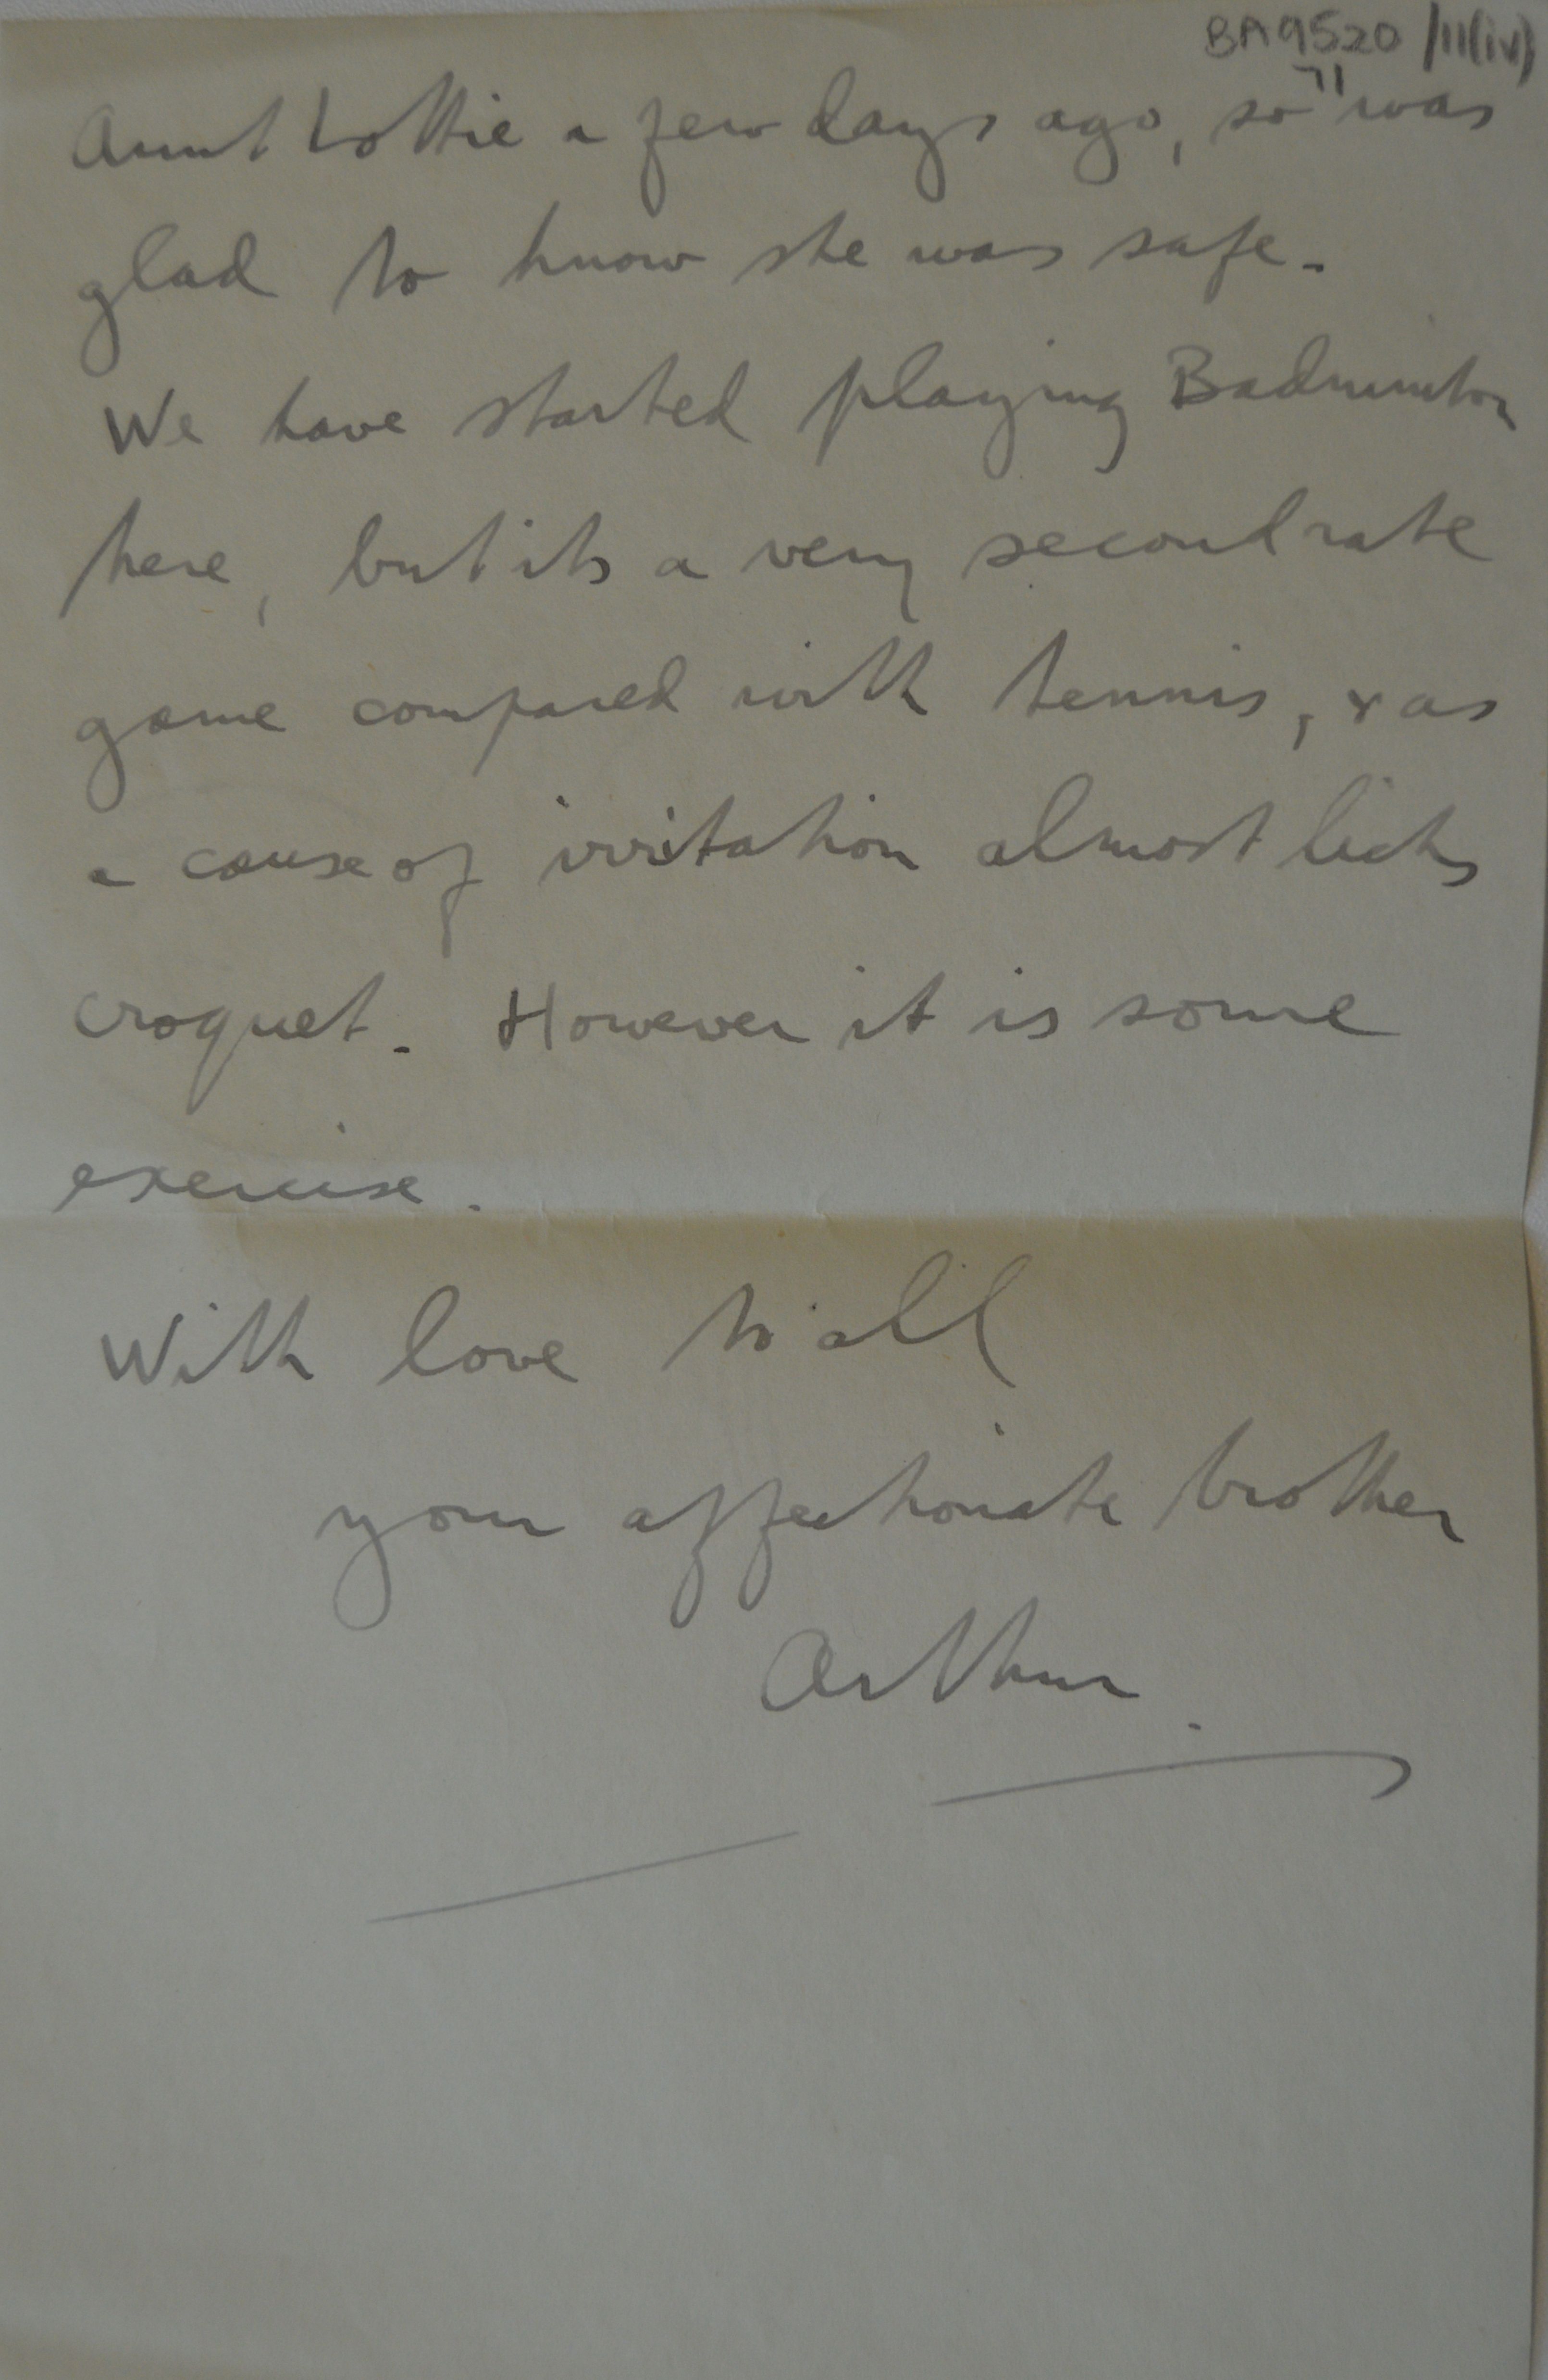 BA9520/11(iv)
71
Aunt Lottie a few days ago, so was
glad to know she was safe.
We have started playing Badminton
here, but its a very second rate
game compared with tennis, & as
a cause of irritation almost licks
croquet. However it is some
exercise.
With love to all
your affectionate brother
Arthur.